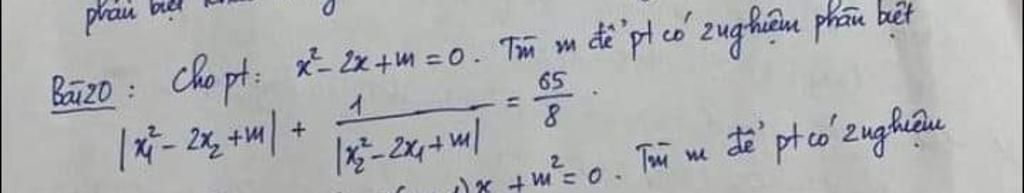 phân biệt
Bài 20 : Cho pt: x² - 2x + m = 0 . Tìm m để pt có 2 nghiệm phân biệt
|x₁² - 2x₂ + m| + 1/|x₂² - 2x₁ + m| = 65/8 .
)x + m² = 0 . Tìm m để pt có 2 nghiệm